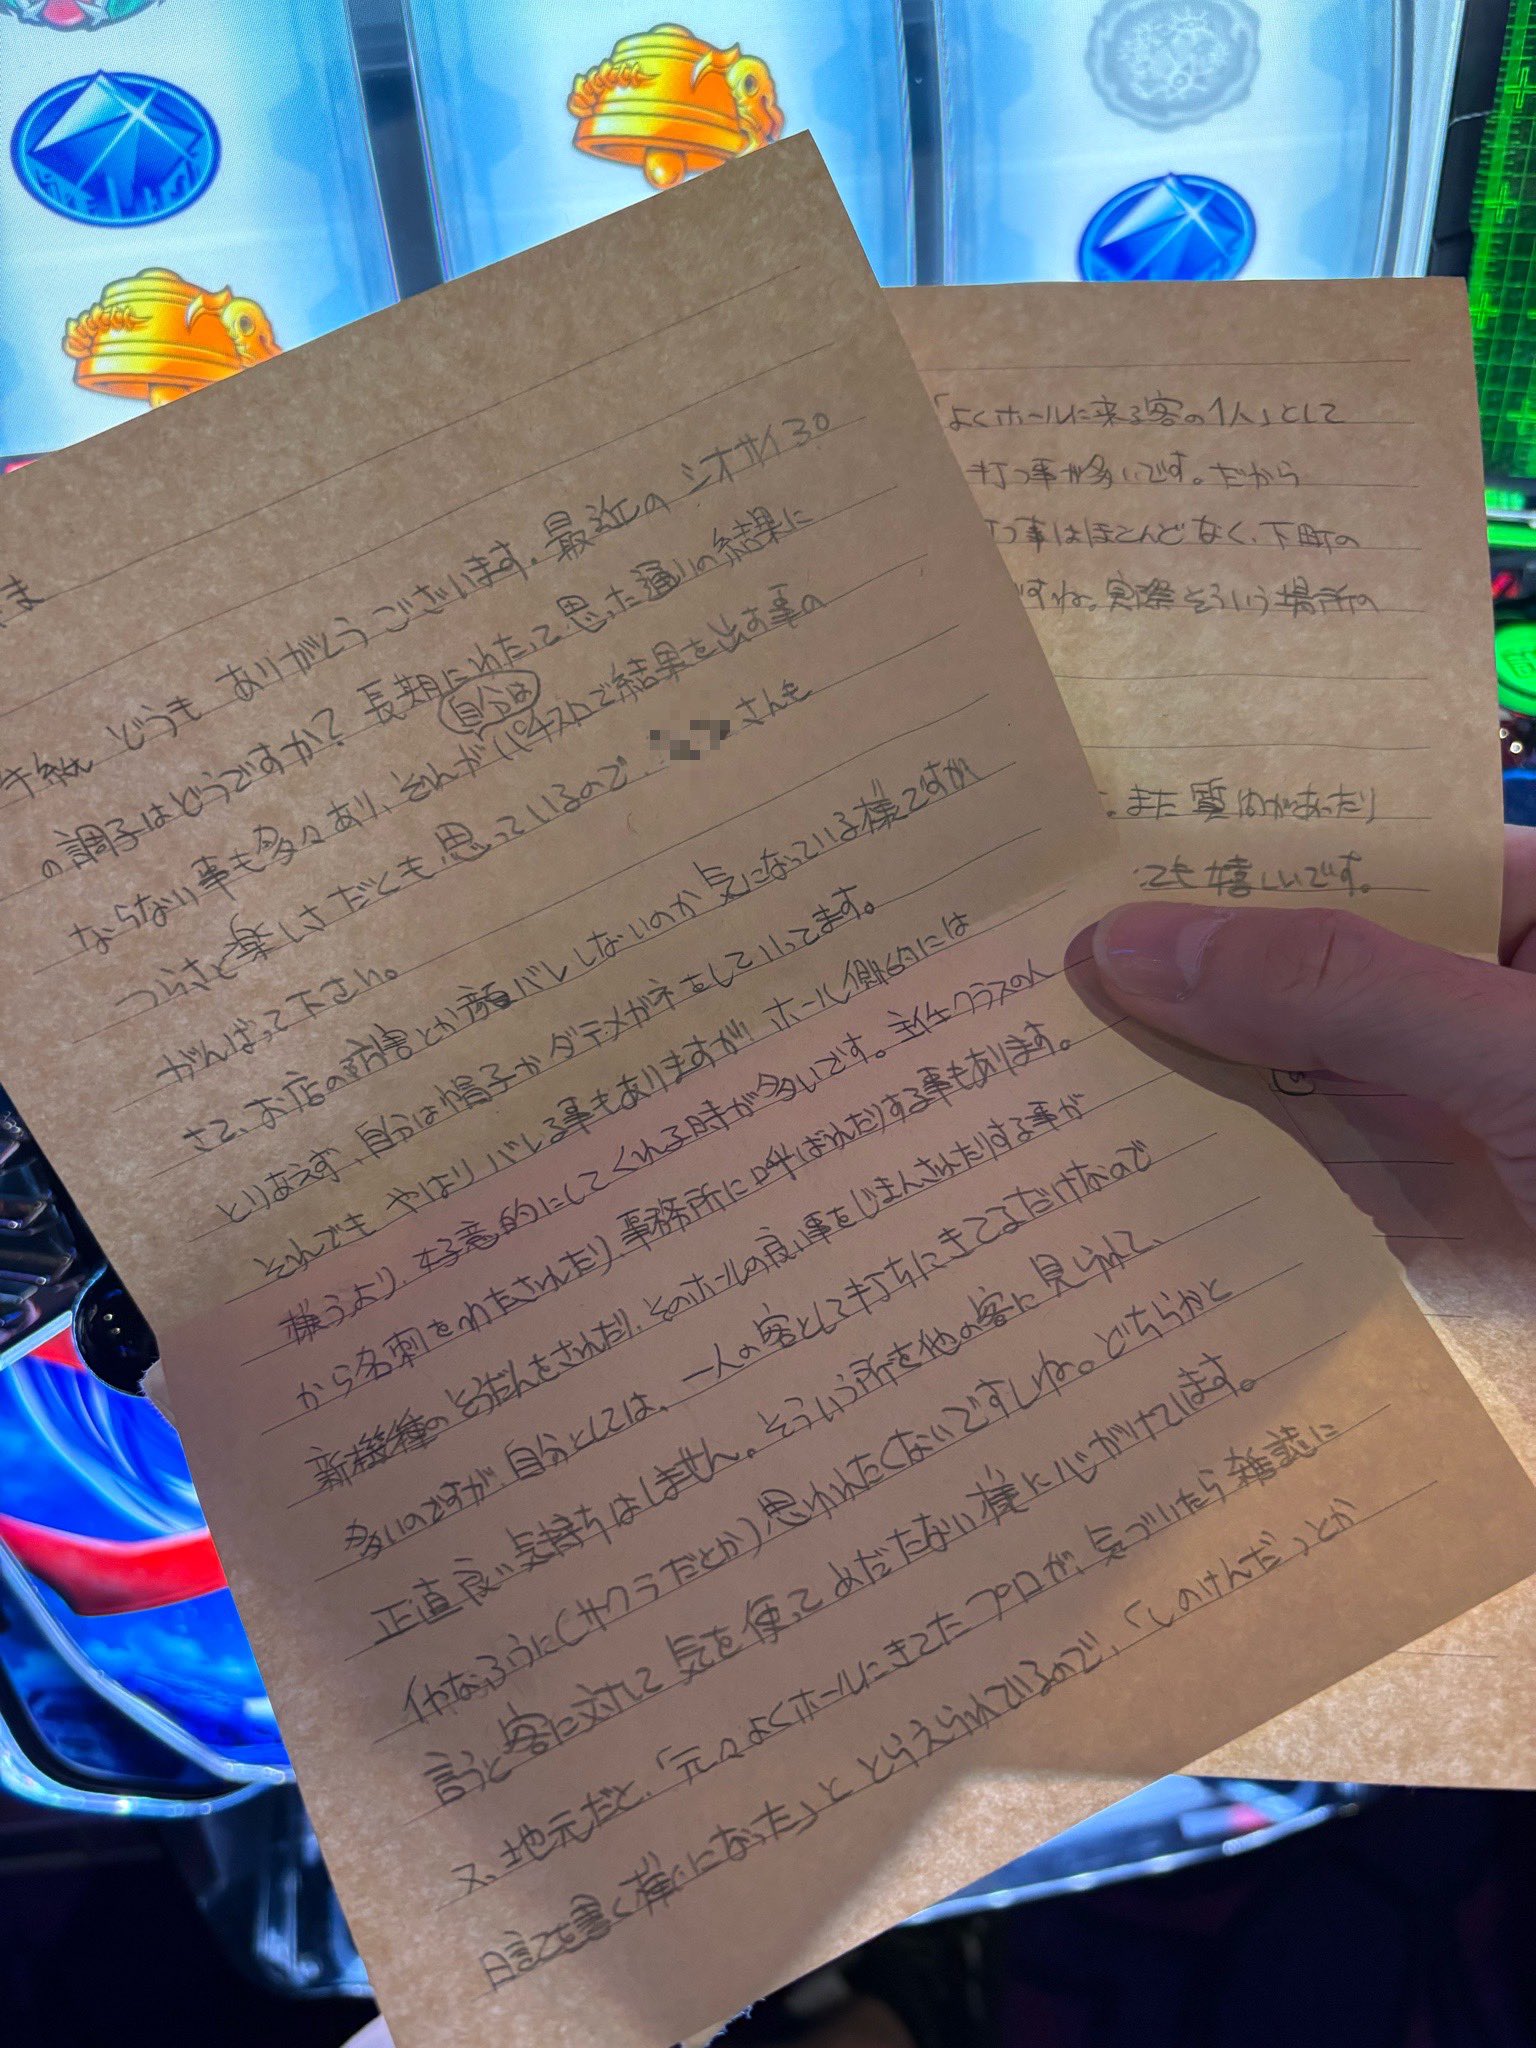 さま
手紙 どうも ありがとうございます。最近の シオサイ30
の調子はどうですか? 長期にわたって思った通りの結果に
ならない事も多々あり、それが 自分は パチスロで結果を出す事の
つらさと楽しさだとも思っているので、さんも
がんばって下さい。
さて、お店の障害とか顔バレしないのか気になっている様ですが
とりあえず、自分は帽子かダテメガネをしていってます。
それでも やはり バレる事もありますが ホール側的には
嫌うより、好意的にしてくれる時が多いです。主任クラスの人
から名刺をわたされたり、事務所に呼ばれたりする事もあります。
新機種のそうだんをされたり、そのホールの良い事をじまんされたりする事が
多いのですが、自分としては、一人の客として打ちにきてるだけなので
正直良い気持ちはしません。そういう所を他の客に見られて、
イヤなふうに(サクラだとか)思われたくないですしね。どちらかと
言うと客に対して気を使ってめだたない様に心がけています。
又、地元だと、「元々よくホールにきてたプロが、気づいたら雑誌に
日記を書く様になった」ととらえられているので、「しのけんだ」とか
「よくホールに来る客の1人」として
打つ事が多いです。だから
打つ事はほとんどなく、下町の
ですね。実際そういう場所の
。また質問があったり
ても嬉しいです。